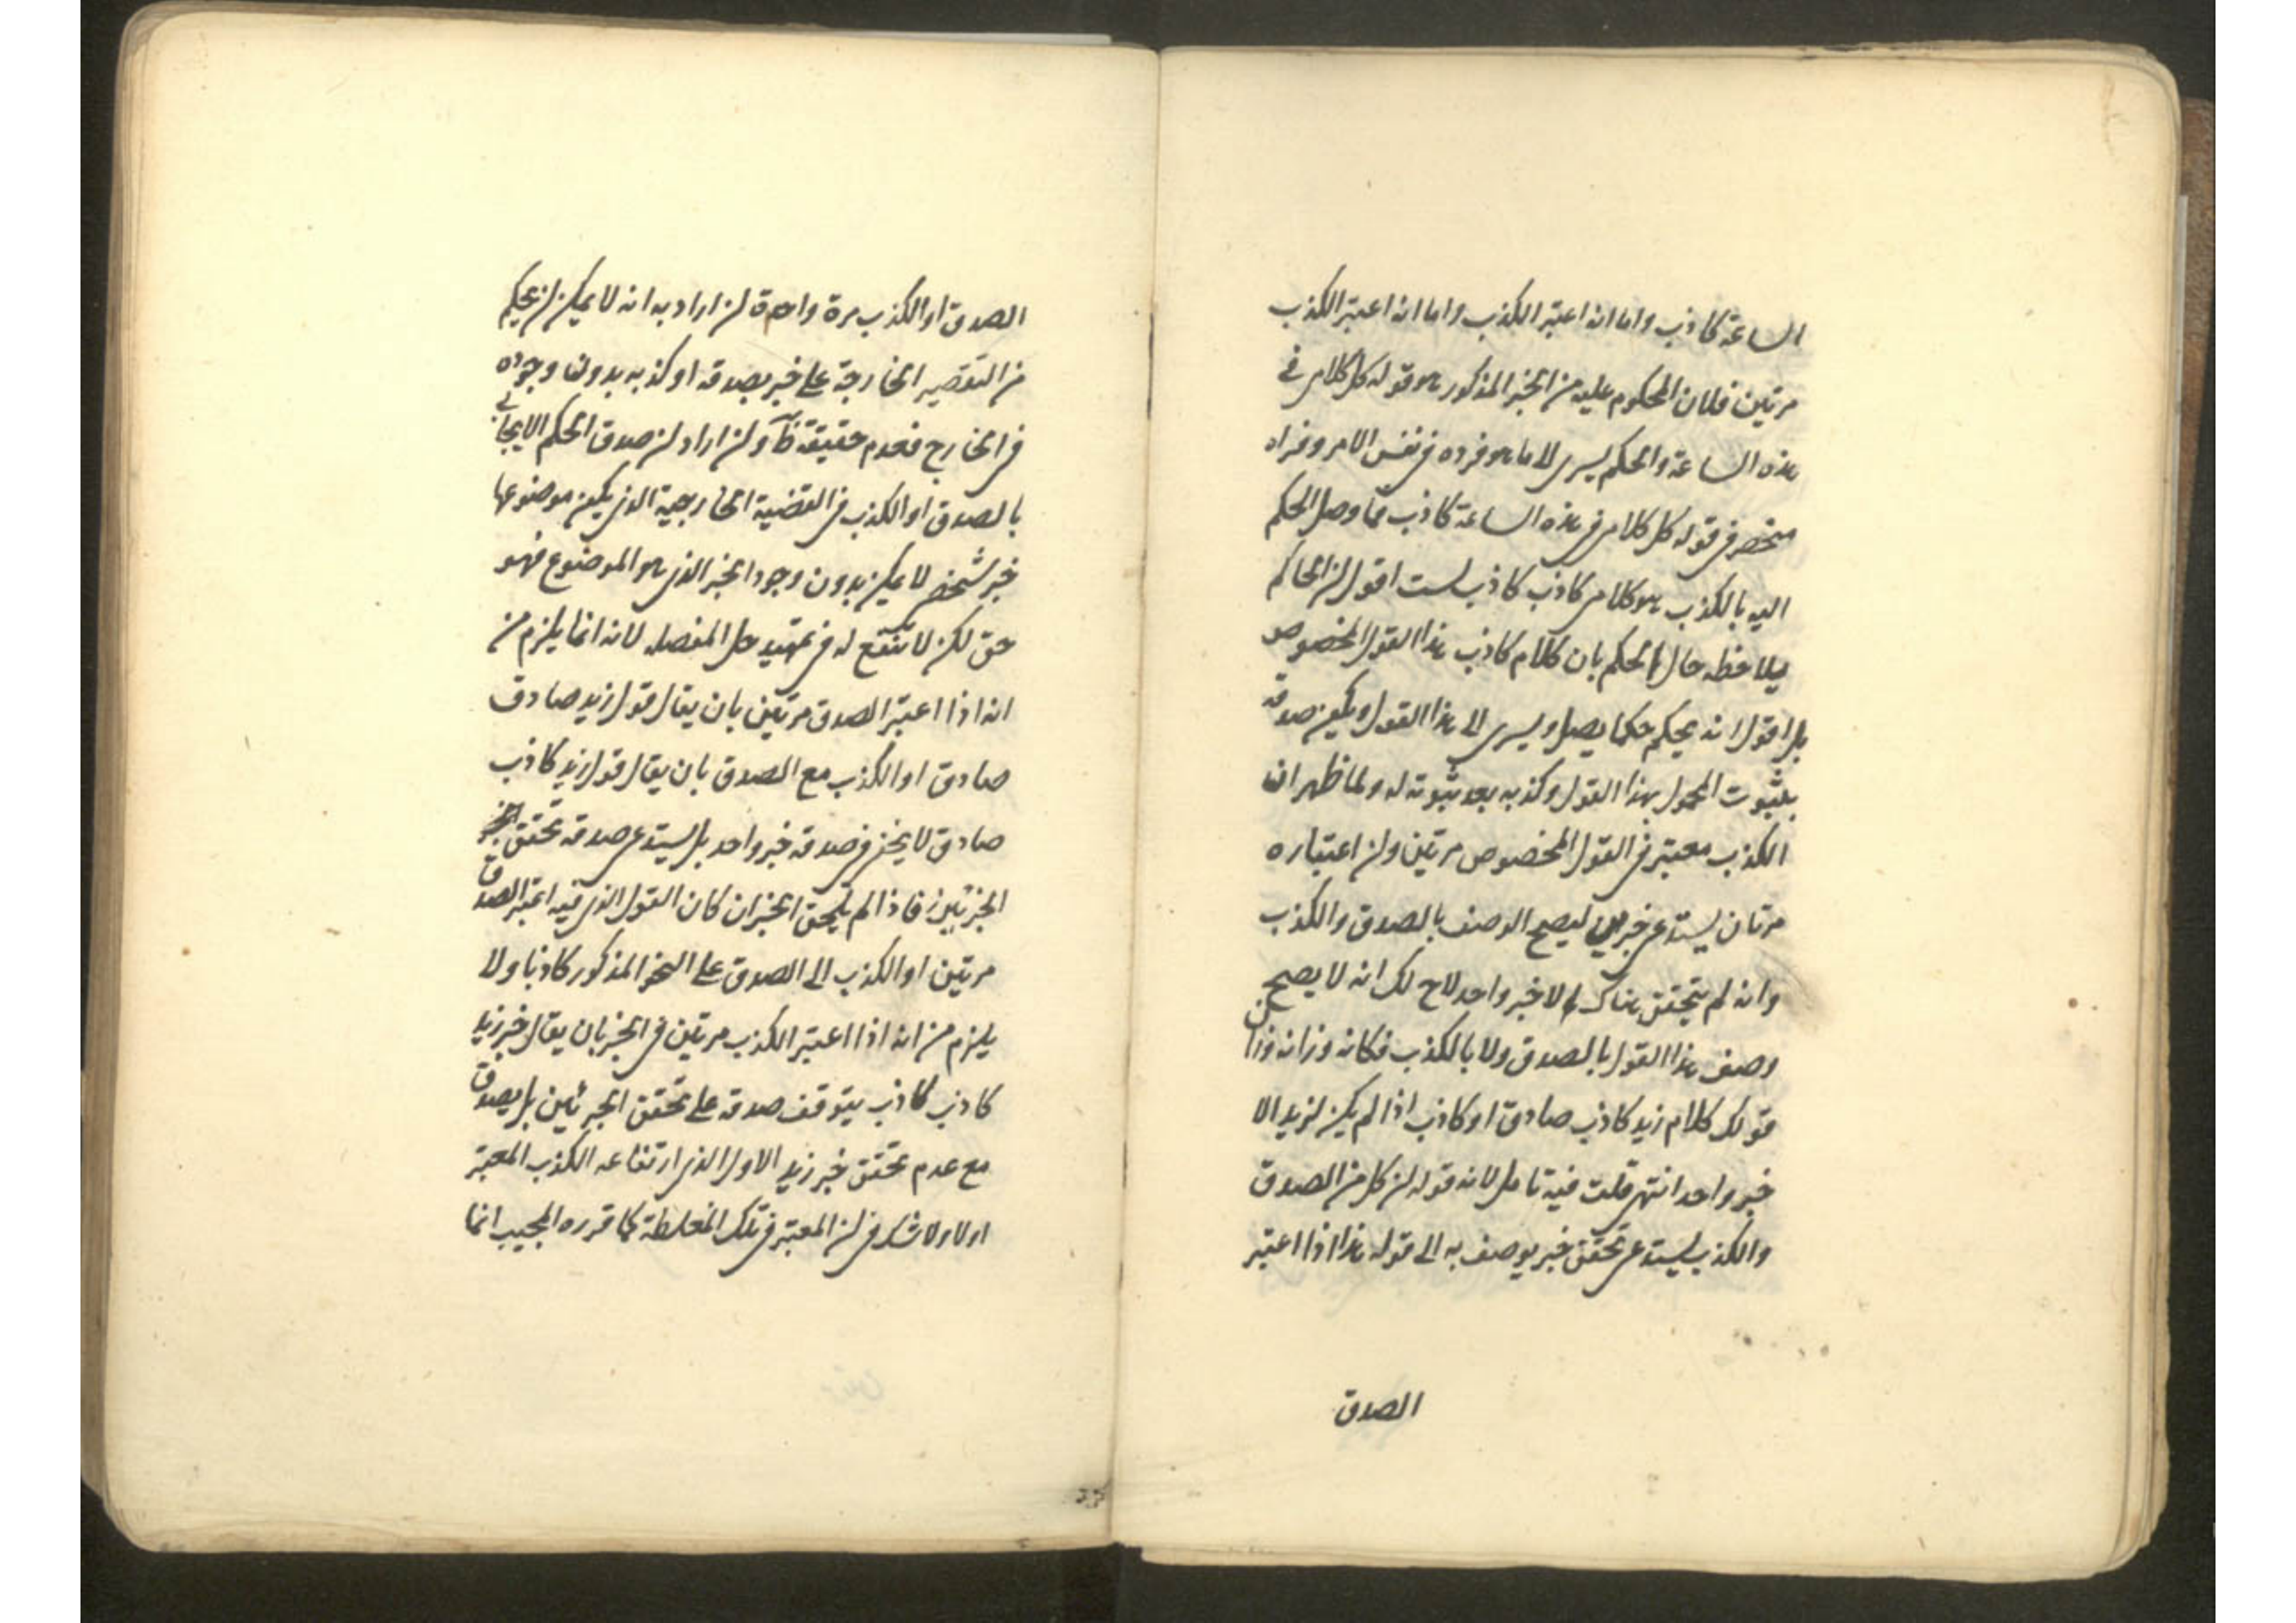 الساعة كاذب واما انه اعتبر الكذب واما انه اعتبر الكذب
مرتين فلان المحكوم عليه من الخبر المذكور هو قوله كل كلامى فى
هذه الساعة والحكم يسرى الا ما هو فرده فى نفس الامر وفراه
منحصر فى قوله كل كلامى فى هذه الساعة كاذب فما وصل الحكم
اليه بالكذب هو كلامى كاذب كاذب لست اقول ان الحاكم
يلاحظه حال الحكم بان كلام كاذب هذا القول المخصوص
بل اقول انه يحكم حكما يصل ويسرى الى هذا القول ويكون صدقه
بثبوت المحمول بهذا القول وكذبه بعد ثبوته له ولما ظهر ان
الكذب معتبر فى القول المخصوص مرتين وان اعتباره
مرتان يستدعى خبرين ليصح الوصف بالصدق والكذب
وانه لم يتحقق هناك الا خبر واحد لاح لك انه لا يصح
وصف هذا القول بالصدق ولا بالكذب فكانه وزانه وزان
قولك كلام زيد كاذب صادق او كاذب اذا لم يكن لزيد الا
خبر واحد انتهى قلت فيه تامل لانه قوله ان كل من الصدق
والكذب يستدعى تحقق خبر يوصف به الى قوله هذا اذا اعتبر
الصدق
الصدق او الكذب مرة واحدة ان اراد به انه لا يمكن ان يحكم
من القضير الخارجة على خبر بصدقه او كذبه بدون وجوده
فى الخارج فعدم حقيقة وان اراد ان صدق الحكم الايجابى
بالصدق او الكذب فى القضية الخارجية الذى يكون موضوعها
خبر شخص لا يمكن بدون وجود الخبر الذى هو الموضوع فهو
حق لكن لا ينفع له فى تمهيد حل المفصله لانه انما يلزم من
انه اذا اعتبر الصدق مرتين بان يقال قول زيد صادق
صادق او الكذب مع الصدق بان يقال قول زيد كاذب
صادق لا يخفى فى صدقه خبر واحد بل يستدعى صدقه تحقق
الخبرين فاذا لم يتحقق الخبران كان القول الذى فيه اعتبر الصدق
مرتين او الكذب الى الصدق على النحو المذكور كاذبا ولا
يلزم من انه اذا اعتبر الكذب مرتين فى الخبر بان يقال خبر زيد
كاذب كاذب يتوقف صدقه على تحقق الخبرين بل يصدق
مع عدم تحقق خبر زيد الاول الذى ارتفاعه الكذب المعتبر
اولا ولا شك فى ان المعتبر فى تلك المغلطة كما قرره المجيب انما